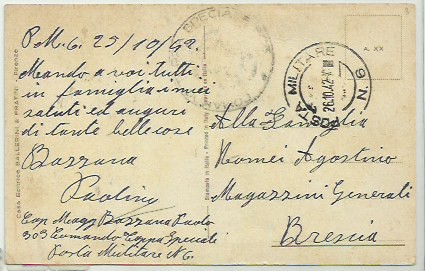 P.M.6. 25/10/42
Mando a voi tutti
in famiglia i miei
saluti ed auguri
di tante belle cose
Bazzana
Paolino
Cap Magg Bazzana Paolo
303 Comando Tappa Speciale
Posta Militare N6.
Alla Famiglia
Romei Agostino
Magazzini Generali
Brescia
POSTA MILITARE
N. 6
26.10.42
SPECIALE
A. XX
Casa Editrice BALLERINI & FRATINI - Firenze
Stampata in Italia - Printed in Italy